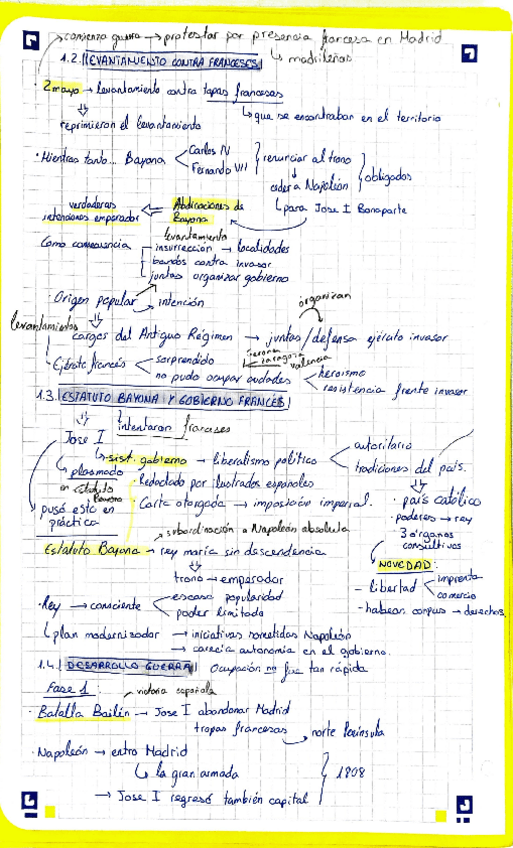 comienza guerra → protestar por presencia francesa en Madrid
↳ madrileños
1.2. LEVANTAMIENTO CONTRA FRANCESES
· 2 mayo → levantamiento contra tropas francesas
↳ que se encontraban en el territorio
reprimieron el levantamiento
· Mientras tanto... Bayona < Carlos IV
Fernando VII } renunciar al trono
ceder a Napoleón } obligados
↳ para Jose I Bonaparte
verdaderas intenciones emperador ⇐ Abdicaciones de Bayona
levantamiento
Como consecuencia
insurrección → localidades
bandos contra invasor
juntas organizar gobierno
Origen popular → intención
organizan
levantamientos
cargos del Antiguo Régimen → juntas/defensa ejército invasor
Gerona
zaragoza
valencia
Ejército francés < sorprendido
no pudo ocupar ciudades < heroismo
resistencia frente invasor
1.3. ESTATUTO BAYONA Y GOBIERNO FRANCÉS
intentaron franceses
Jose I
↳ sist. gobierno → liberalismo político < autoritario
tradiciones del país.
↳ plasmado en Estatuto Bayona
· Redactado por ilustrados españoles
· Carta otorgada → imposición imperial.
· país católico
· poderes → rey
· 3 órganos consultivos
puso esto en práctica
subordinación a Napoleón absoluta
Estatuto Bayona → rey moría sin descendencia
trono → emperador
NOVEDAD:
- libertad < imprenta
comercio
- habeas corpus → derechos.
· Rey → consciente < escasa popularidad
poder limitado
↳ plan modernizador → iniciativas sometidas Napoleón
→ carecía autonomía en el gobierno.
1.4. DESARROLLO GUERRA Ocupación no fue tan rápida
Fase 1:
victoria española
· Batalla Bailén → Jose I abandonar Madrid
tropas francesas → norte Península
· Napoleón → entro Madrid
↳ la gran armada } 1808
→ Jose I regresó también capital